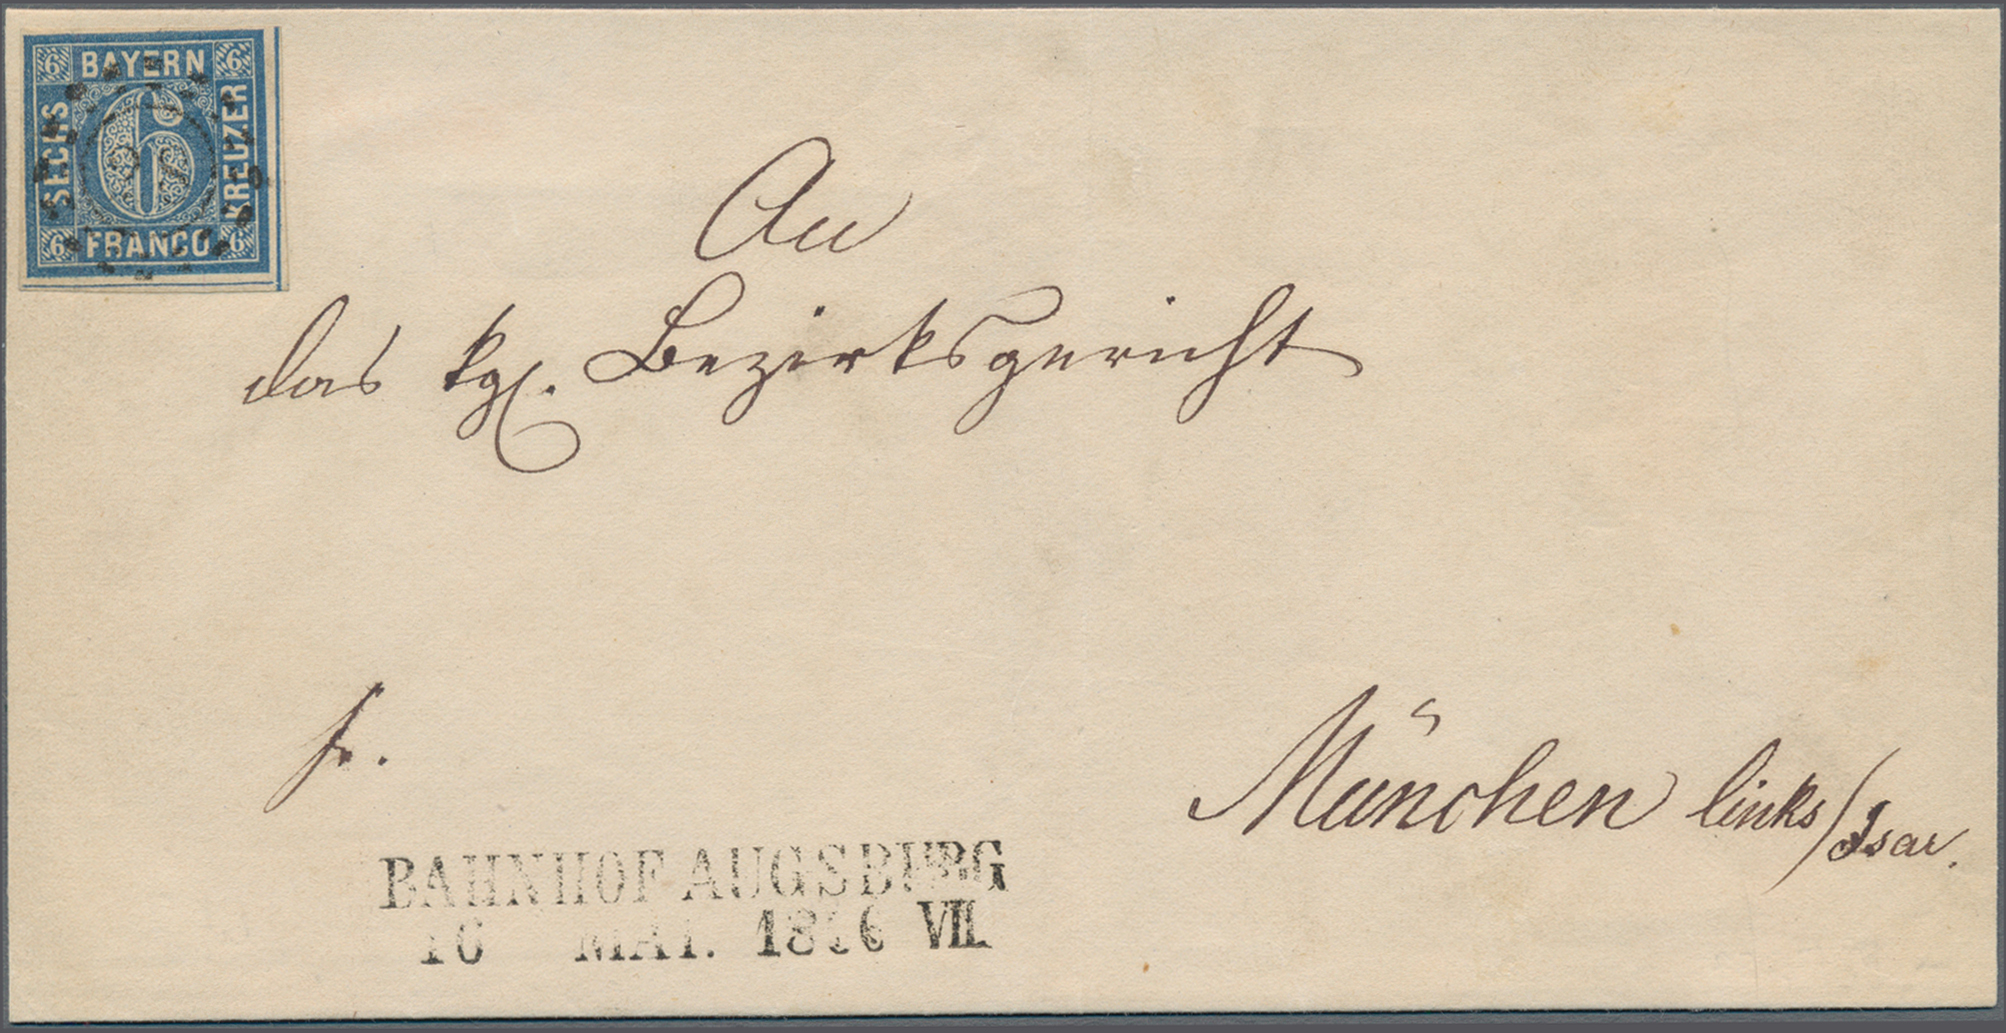 6 BAYERN 6
SECHS 6 KREUZER
6 FRANCO 6
An
das kgl. Bezirksgericht
fr.
München links/Isar.
BAHNHOF AUGSBURG
16 MAI. VII.